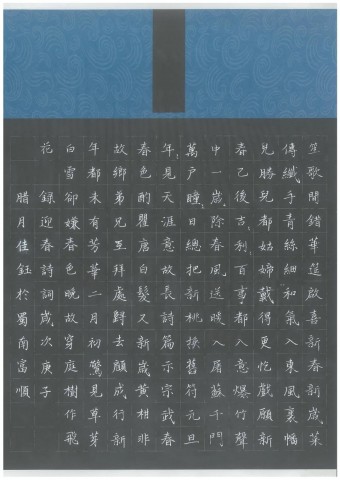 笙歌間錯華筵啟喜新春新歲菜
傳纖手青絲細和氣入東風裏幡
兒勝兒都姑婦戴得更忺戲願新
春已後吉、利、百事都如意爆竹聲
中一歲除春風送暖入屠蘇千門
萬戶曈、日總把新桃換舊符元旦
年、見天涯意故長詩篇示宗武春
春色酌瞿唐白髮又新歲黃柑非
故鄉弟兄互拜處歸去願成行新
年都未有芳華二月初驚見草芽
白雪卻嫌春色晚故穿庭樹作飛
花 錄迎春詩詞歲次庚子
臘月佳鈺於蜀南富順